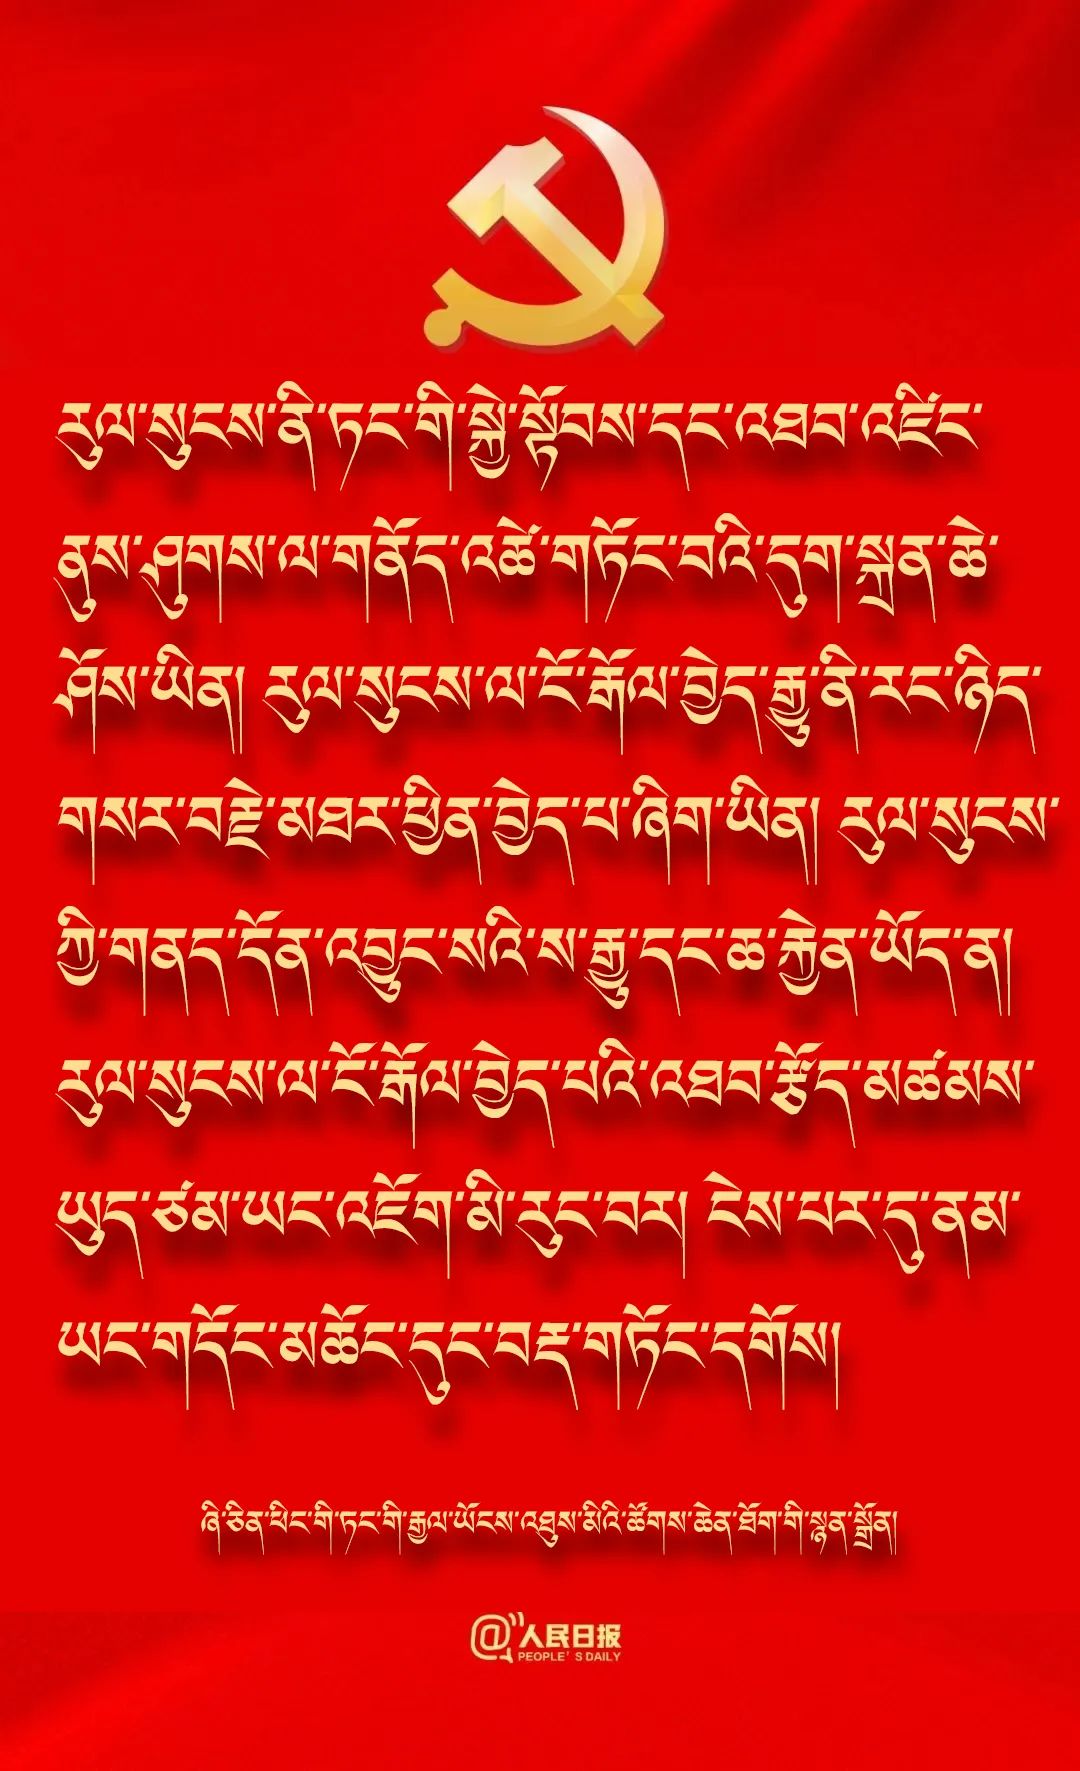 རུལ་སུངས་ནི་ཏང་གི་སྐྱེ་སྟོབས་དང་འཐབ་འཛིང་
ནུས་ཤུགས་ལ་གནོད་འཚེ་གཏོང་བའི་དུག་སྐྲན་ཆེ་
ཤོས་ཡིན། རུལ་སུངས་ལ་ངོ་རྒོལ་བྱེད་རྒྱུ་ནི་རང་ཉིད་
གསར་བརྗེ་མཐར་ཕྱིན་བྱེད་པ་ཞིག་ཡིན། རུལ་སུངས་
ཀྱི་གནད་དོན་འབྱུང་སའི་ས་རྒྱུ་དང་ཆ་རྐྱེན་ཡོད་ན།
རུལ་སུངས་ལ་ངོ་རྒོལ་བྱེད་པའི་འཐབ་རྩོད་མཚམས་
ཡུད་ཙམ་ཡང་འཇོག་མི་རུང་བར། ངེས་པར་དུ་ནམ་
ཡང་གདོང་མཆོང་དུང་བརྡ་གཏོང་དགོས།
ཞི་ཅིན་ཕིང་གི་ཏང་གི་རྒྱལ་ཡོངས་འཐུས་མིའི་ཚོགས་ཆེན་ཐོག་གི་སྙན་སྒྲོན།
@人民日报
PEOPLE'S DAILY